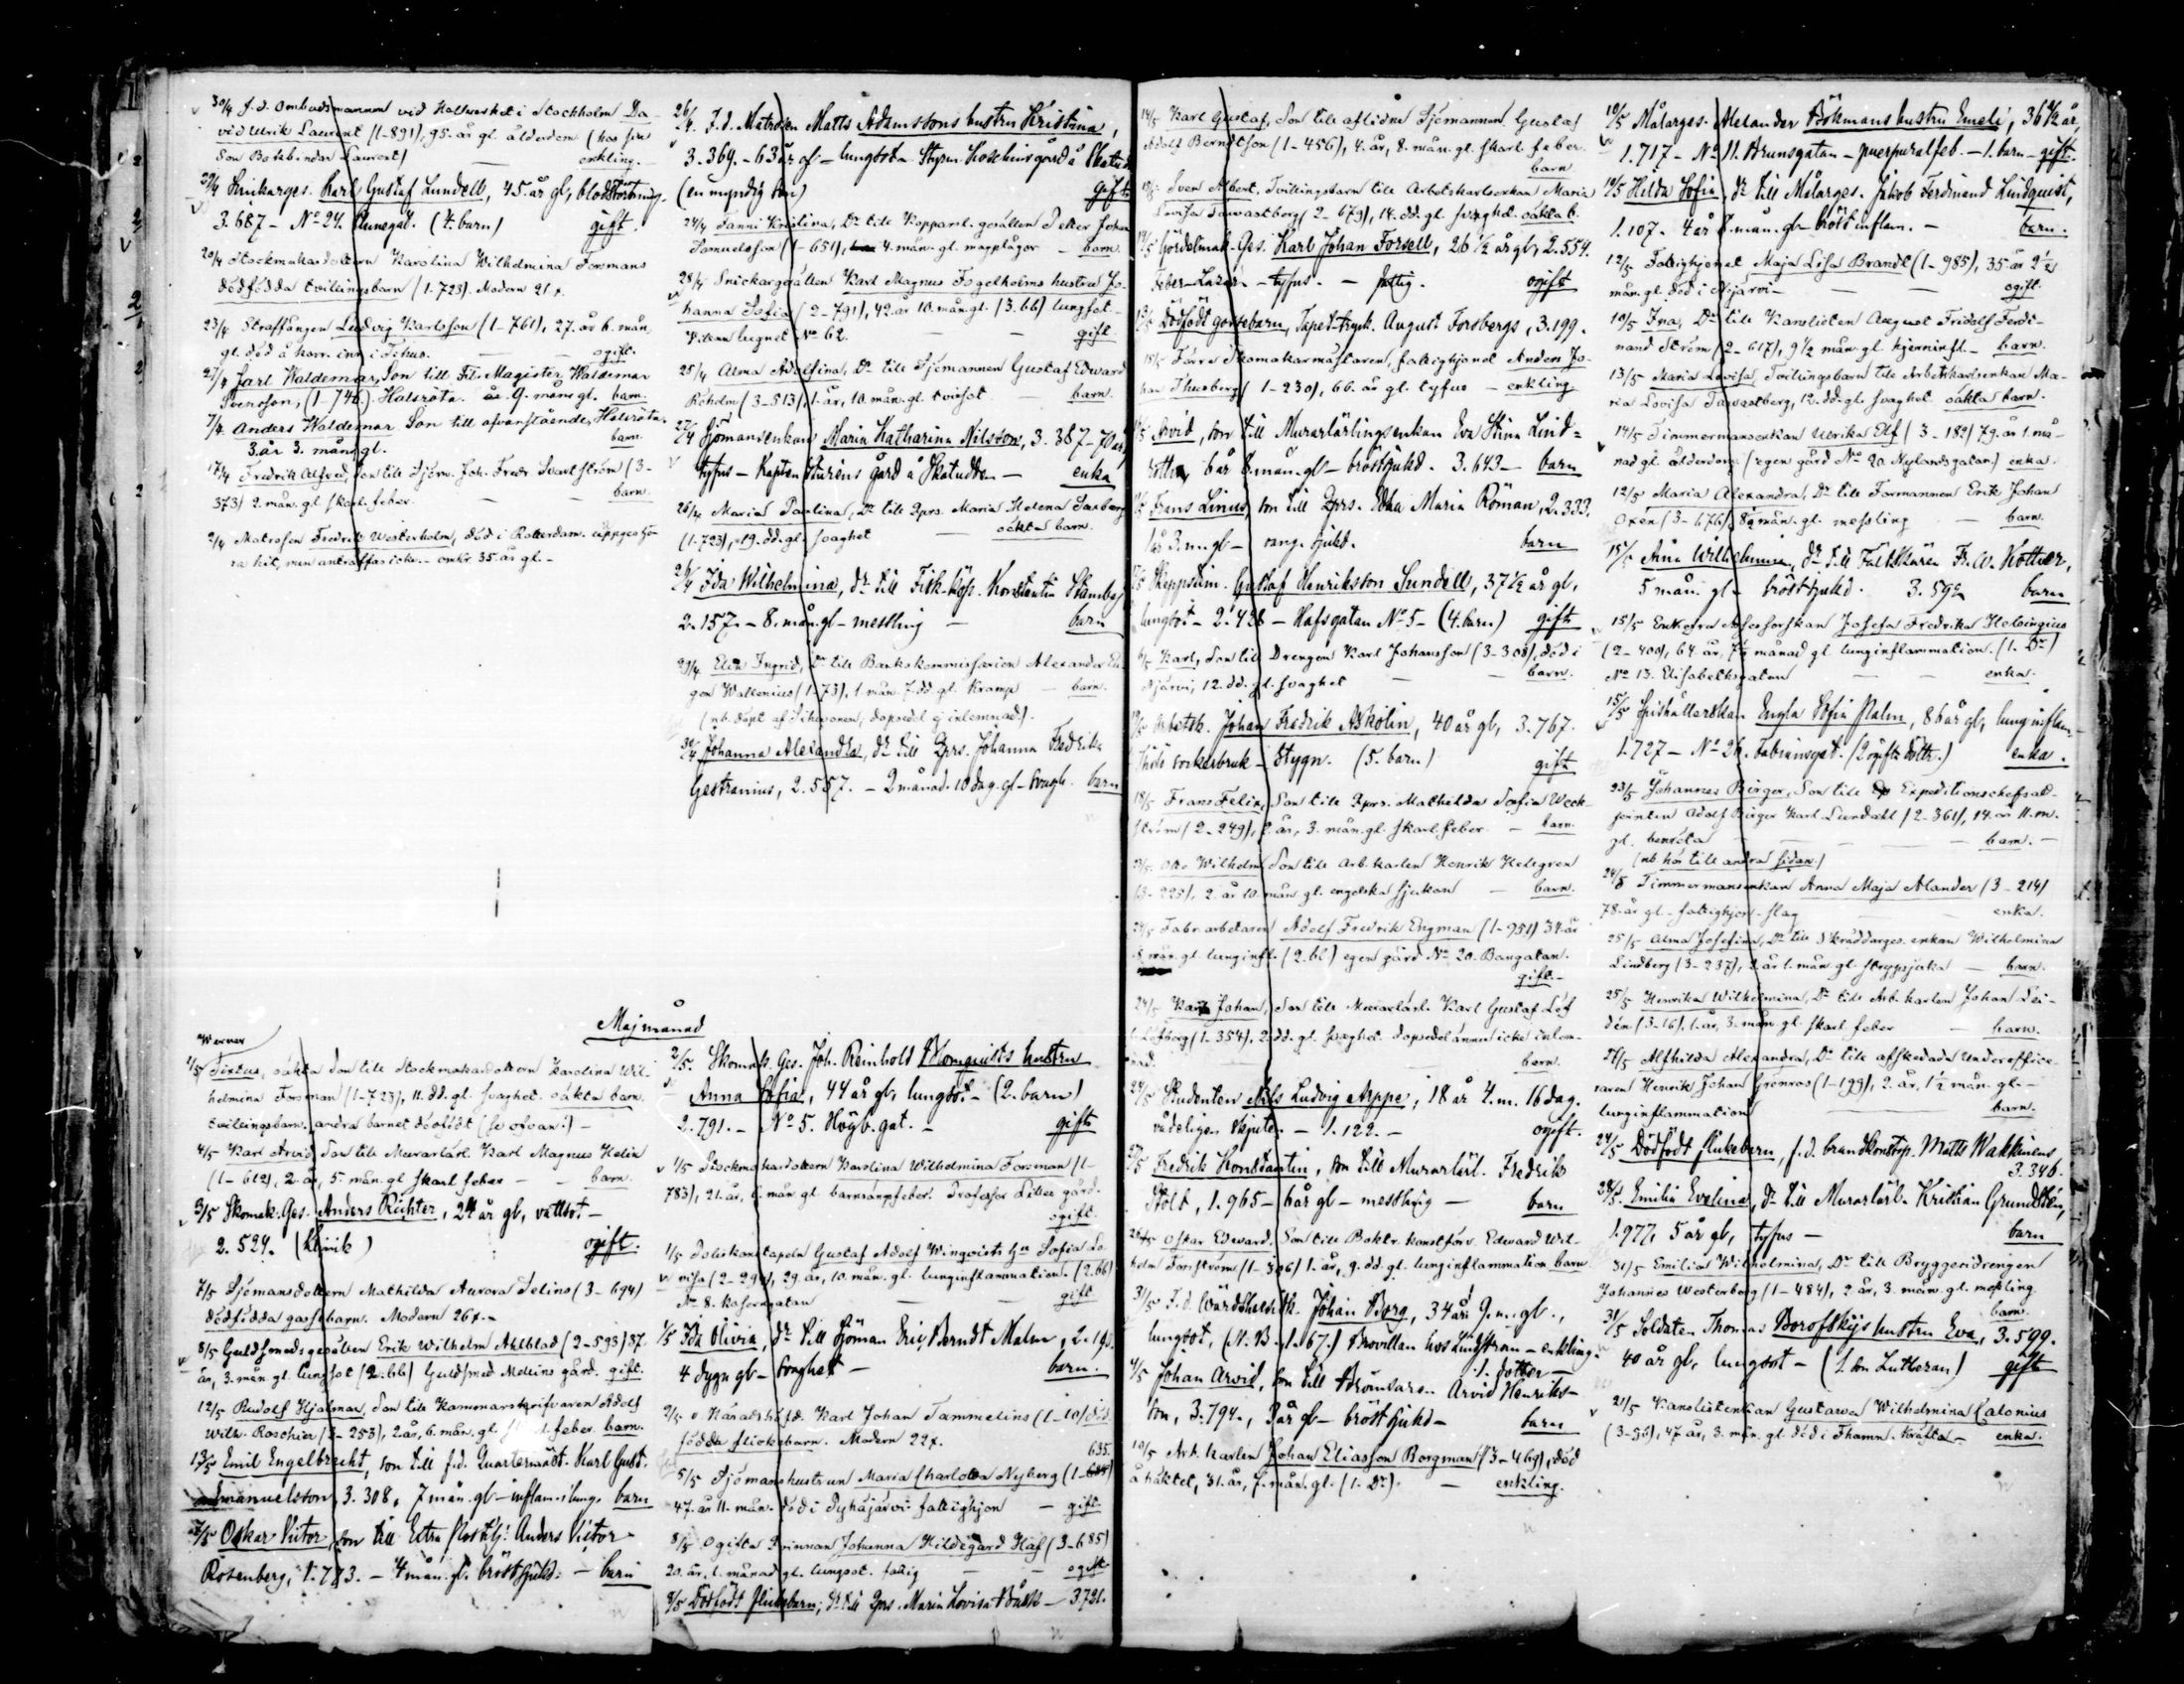 30/4 f.d. Ombudsmannen vid Hallverket i Stockholm Da-
vid Ulrik Laurent (1-891), 95. år gl. ålderdom (hos sin
Son Bokbindar Laurent) enkling.
Snickarges. Karl Gustaf Lundell, 45. år gl, blodstörtning.
3.687 - No 24. Annegat. (4. barn) gift.
20/4 Stockmakardottern Karolina Wilhelmina Forsmans
dödfödda tvillingsbarn (1-723). Modern 21 r.
23/4 Straffången Ludvig Karlsson (1-761), 27. år 6. mån.
gl. död å korr. inr. i Tihus. ogift.
27/4 Jarl Waldemar, Son till Fil. Magister Waldemar
Svensson, (1-746). Halsröta. 9. mån. gl. barn.
7/4 Anders Waldemar Son till ofvanstående, Halsröta.
3. år 3. mån. gl. barn.
17/4 Fredrik Alfred, Son till Sjöm. Joh. Fredr. Svartström (3-
373) 2. mån. gl. skarl. feber. barn.
2/4 Matrosen Fredrik Westerholm, död i Rotterdam. uppges hö-
ra hit, men anträffas icke. omkr 35. år gl.-
26/4 F.d. Matrosen Matts Adamssons hustru Kristina,
3.369. - 63 år gl - lungsot - Styrm. gård å Skatud.
(en myndig son) gift
24/4 Fanni Kristina, Dr till Kopparsl. gesällen Petter Johan
Samuelsson (1-651), 4. mån. gl. magplågor - barn.
28/4 Snickargesällen Karl Magnus Fogelholms hustru Jo-
hanna Sofia (2-791), 42. år 10. mån. gl. (3. bb) lungsot.
Villan lugnet No 62. gift
25/4 Alma Adolfina, Dr till Sjömannen Gustaf Edward
Röholm (3-513), 1. år, 10. mån. gl. tvinsot - barn.
27/4 Sjömansenkan Maria Katharina Nilsson, 3.387 - 70 år,
tyfus - Kapten Sturens gård å Skatudden - enka
26/4 Maria Paulina, Dr till Qprs. Maria Helena
(1-723), 19. dd. gl. svaghet oäkta barn.
Ida Wilhelmina, dr till Fisk-köp. Konstantin
2.157. - 8. mån. gl - messling - barn
29/4 Elin Ingrid, Dr till Bankokommissarien Alexander Eu-
gen Wallenius (1-73), 1. mån. 7. dd. gl. Kramp - barn.
(nb. döpt af Sihvonen, dopsedel ej inlemnad).
30/4 Johanna Alexandra, dr till Qprs. Johanna Fredrika
Gestranius, 2.557. - 2 månad. 10 dag. gl - svagh. barn
Majmånad
Werner
1/5 Sixtus, oäkta Son till Stockmakardottern Karolina Wil-
helmina Forsman (1-723), 11. dd. gl. svaghet. oäkta barn.
tvillingsbarn. andra barnet dödfödt (se ofvan.) -
4/5 Karl Arvid Son till Murarlärl. Karl Magnus Helin
(1-612), 2. år, 5. mån. gl. skarl. feber - barn.
3/5 Skomak. Ges. Anders Richter, 24 år gl, vattsot -
2.524. (Klinik) ogift.
7/5 Sjömansdottern Mathilda Aurora Selins (3-694)
dödfödda gossebarn. Modern 26 r.-
8/5 Guldsmedsgesällen Erik Wilhelm Ahlblad (2-593) 37.
år, 3. mån. gl. lungsot (2. bb) Guldsmed Melins gård. gift.
12/5 Rudolf Hjalmar, Son till Kammarskrifvaren Adolf
Wilh. Roschier (3-253), 2 år, 6. mån. gl. feber. barn.
13/5 Emil Engelbrecht, son till f.d. Quartermäst. Karl Gust.
Emanuelsson 3.308. 7 mån. gl - inflam. i lung. barn
7/5 Oskar Victor, son till Extra Anders Victor
Rosenberg, 1.773. - 4 mån. gl. bröstsjukd. - barn
2/5. Skomak. Ges. Joh. Reinhold Blomquists hustru
Anna Sofia, 44 år gl, lungsot - (2. barn)
2.791. - No 5. Högb. gat. - gift
1/5 Stockmakardottern Karolina Wilhelmina Forsman (1-
783), 21. år, 6. mån. gl. barnsängsfeber. Professor Lilles gård.
ogift.
1/5 Poliskonstapeln Gustaf Adolf Wingvists Hu Sofia Lo-
visa (2-294), 29. år, 10. mån. gl. lunginflammation. (2. bb)
No 8. Kaserngatan gift
1/5 Ida Olivia, dr till Sjöman Eric Berndt Malm, 2.
4 dygn gl - svaghet - barn.
9/5 v. Häradshöfd. Karl Johan Tammelins (1-10) död-
födda flickebarn. Modern 22 r.
635.
5/5 Sjömanshustrun Maria Charlotta Nyberg (1-
47. år 11. mån. död i Pyhäjärvi fattighjon - gift
8/5 Ogifta Qvinnan Johanna Hildegard Haf (3-685)
20. år, 1. månad gl. lungsot. fattig - ogift
9/5 Dödfödt flickebarn, dr till Qprs. Maria Lovisa - 3.721.
14/5 Karl Gustaf, Son till aflidne Sjömannen Gustaf
Adolf Berndtson (1-456), 4. år, 8. mån. gl. skarl. feber.
barn
Sven Albert, Tvillingsbarn till Arbetskarlsenkan Maria
Lovisa Tavastberg (2-679), 14. dd. gl. svaghet. oäkta b.
14/5 Gördelmak. Ges. Karl Johan Forsell, 26 1/2 år gl, 2.554.
- tyfus. - fattig. ogift
Dödfödt gossebarn, Tapet-tryck. August Forsbergs, 3.199.
15/5 Förra Skomakarmästaren, fattighjonet Anders Jo-
han Thusberg (1-230), 66. år gl. tyfus - enkling
Arvid, son till Murarlärlingsenkan Eva Stina Lind-
6 år 8. mån. gl - bröstsjukd. 3.643 - barn
Frans Linus, son till Qprs. Edla Maria Röman, 2.333.
1 år 3. m. gl - eng. sjukd. barn
Skeppstim. Gustaf Henriksson Sundell, 37 1/2 år gl,
lungsot - 2.428 - Hafsgatan No 5 - (4. barn) gift
Karl, Son till Drengen Karl Johansson (3-308), död i
Nijärvi, 12. dd. gl. svaghet - barn.
Arbetsk. Johan Fredrik Askolin, 40 år gl, 3.767.
Sockerbruk - Stygn. (5. barn) gift
18/5 Frans Felix, Son till Qprs. Mathilda Sofia Weck-
ström (2-249), 2. år, 3. mån. gl. skarl. feber - barn.
Otto Wilhelm Son till Arb. Karlen Henrik Helegren
(3-225), 2. år 10. mån. gl. engelska sjukan - barn.
24/5 Fabr. arbetaren Adolf Fredrik Engman (1-951) 34. år
8. mån. gl. lunginfl. (2. bb) egen gård No 20. Bangatan.
gift.-
24/5 Karl Johan, Son till Murarlärl. Karl Gustaf Löf
l. Löfberg (1-354), 2. dd. gl. svaghet. dopsedel ännu icke inlem-
nad. barn.
24/5 Studenten Nils Ludvig Arppe, 18 år 4. m. 16 dag.
vådeligen skjuten - 1.122. - ogift.
27/5 Fredrik Konstantin, son till Murarlärl. Fredrik
Stolt, 1.965 - 6 år gl - messling - barn
Oskar Edvard. Son till Boktr. konstförv. Edward Wil-
helm Forsström (1-306) 1. år, 9. dd. gl. lunginflammation barn
31/5 F.d. Johan Borg, 34 år 9. m. gl.,
lungsot, (N.B. 1.167.) hos Lindström - enkling.
1. dotter -
4/5 Johan Arvid, son till Arvid Henriks-
son, 3.794., 3 år gl - bröstsjukd - barn
10/5 Arb. Karlen Johan Eliasson Borgman (3-469), död
å häktet, 31. år, 7. mån. gl. (1. Dr). - enkling.
10/5 Målarges. Alexander Bökmans hustru Emeli, 36 1/2 år,
1.717 - No 11. Brunsgatan - puerpuralfeb. - 1. barn - gift.
Hilda Sofia, dr till Målarges. Jakob Ferdinand Lindquist,
1.107. 4 år 8. mån. gl - bröstinflam. - barn.
12/5 Fattighjonet Maja Lisa Brandt (1-985), 35. år 2 1/2
mån. gl. död i Nijärvi - ogift
10/5 Ina, Dr till Kanslisten August Fridolf Ferdi-
nand Ström (2-617), 9 1/2 mån. gl. hjerninfl. - barn.
13/5 Maria Lovisa, Tvillingsbarn till Arbetskarlsenkan Ma-
ria Lovisa Tavastberg, 12. dd. gl. svaghet oäkta barn.
14/5 Timmermansenkan Ulrika Elf (3-182) 79. år 1. må-
nad gl. ålderdom. (egen gård No 20. Nylandsgatan) enka.
12/5 Maria Alexandra, Dr till Formannen Erik Johan
Oxén (3-676), 8 1/2 mån. gl. messling - barn.
Anna Wilhelmina, dr till Fältskären Fr. W. Kottner,
5 mån. gl - bröstsjukd. 3.592 barn
15/5 Enkefru Assessorskan Josefa Fredrika Helsingius
(2-400), 64 år, 7 1/2 månad gl. lunginflammation. (1. Dr)
No 13. Elisabethsgatan - enka.
15/5 Spishållerskan Engla Sofia Malm, 86 år gl, lunginflam.
1.727 - No 26. Fabiansgat. (2 ogifta döttr.) enka.
23/5 Johannes Birger, Son till Expeditionschefsad-
jointen Adolf Birger Karl Lundahl (2-361), 14. år 11. m.
gl. benröta - barn.-
(nb. hör till andra sidan.)
24/5 Timmermansenkan Anna Maja Alander (3-214)
78. år gl - fattighjon - slag enka.
25/5 Alma Josefina, Dr till Skräddarges. enkan Wilhelmina
Lindberg (3-237), 2. år 1. mån. gl. strypsjuka - barn.
25/5 Henrika Wilhelmina, Dr till Arb. Karlen Johan Lei-
dén (3-16), 1. år, 3. mån. gl. skarl. feber - barn.
Alfhilda Alexandra, Dr till afskedade Underoffice-
raren Henrik Johan Grönroos (1-199), 2. år, 1 1/2 mån. gl. -
lunginflammation barn.
24/5 Dödfödt flickebarn, f.d. brandkonstap. Matts Wakkinens
3.346.
28/5. Emilia Evelina, dr till Murarlärl. Kristian Grundsten,
1.977, 5 år gl, tyfus - barn
31/5 Emilia Wilhelmina, Dr till Bryggeridrengen
Johannes Westerberg (1-484), 2. år, 3. mån. gl. messling
barn.
31/5 Soldaten Thomas Borofskijs hustru Eva, 3.599.
40 år gl, lungsot - (1. son Lutheran) gift
21/5 Kanslistenkan Gustava Wilhelmina Calonius
(3-96), 47 år, 3. mån. gl. död i Fhamn. Kräfta - enka.